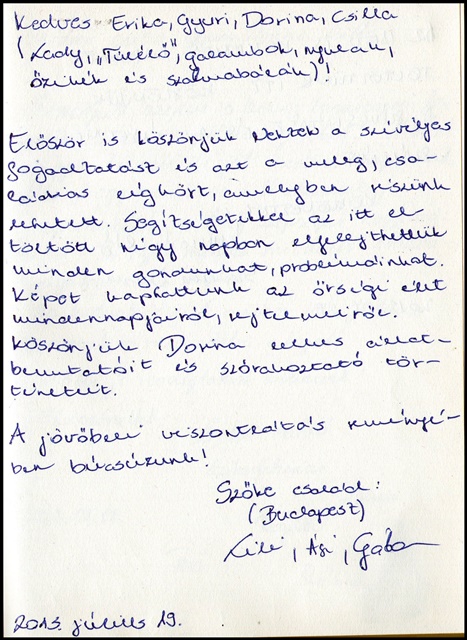 Kedves Erika, Gyuri, Dorina, Csilla
(Lady, "Túlélő", galambok, nyulak,
őzikék és szalmabálák)!
Először is köszönjük Nektek a szívélyes
fogadtatást és azt a meleg, csa-
ládias légkört, amelyben részünk
lehetett. Segítségetekkel az itt el-
töltött négy napban elfelejthettük
minden gondunkat, problémáinkat.
Képet kaphattunk az őrségi élet
mindennapjairól, rejtelmeiről.
Köszönjük Dorina lelkes állat-
bemutatóit és szórakoztató tör-
téneteit.
A jövőbeli viszontlátás reményé-
ben búcsúzunk!
Szőke család:
(Budapest)
Lili, Ági, Gábor
2013. július 19.